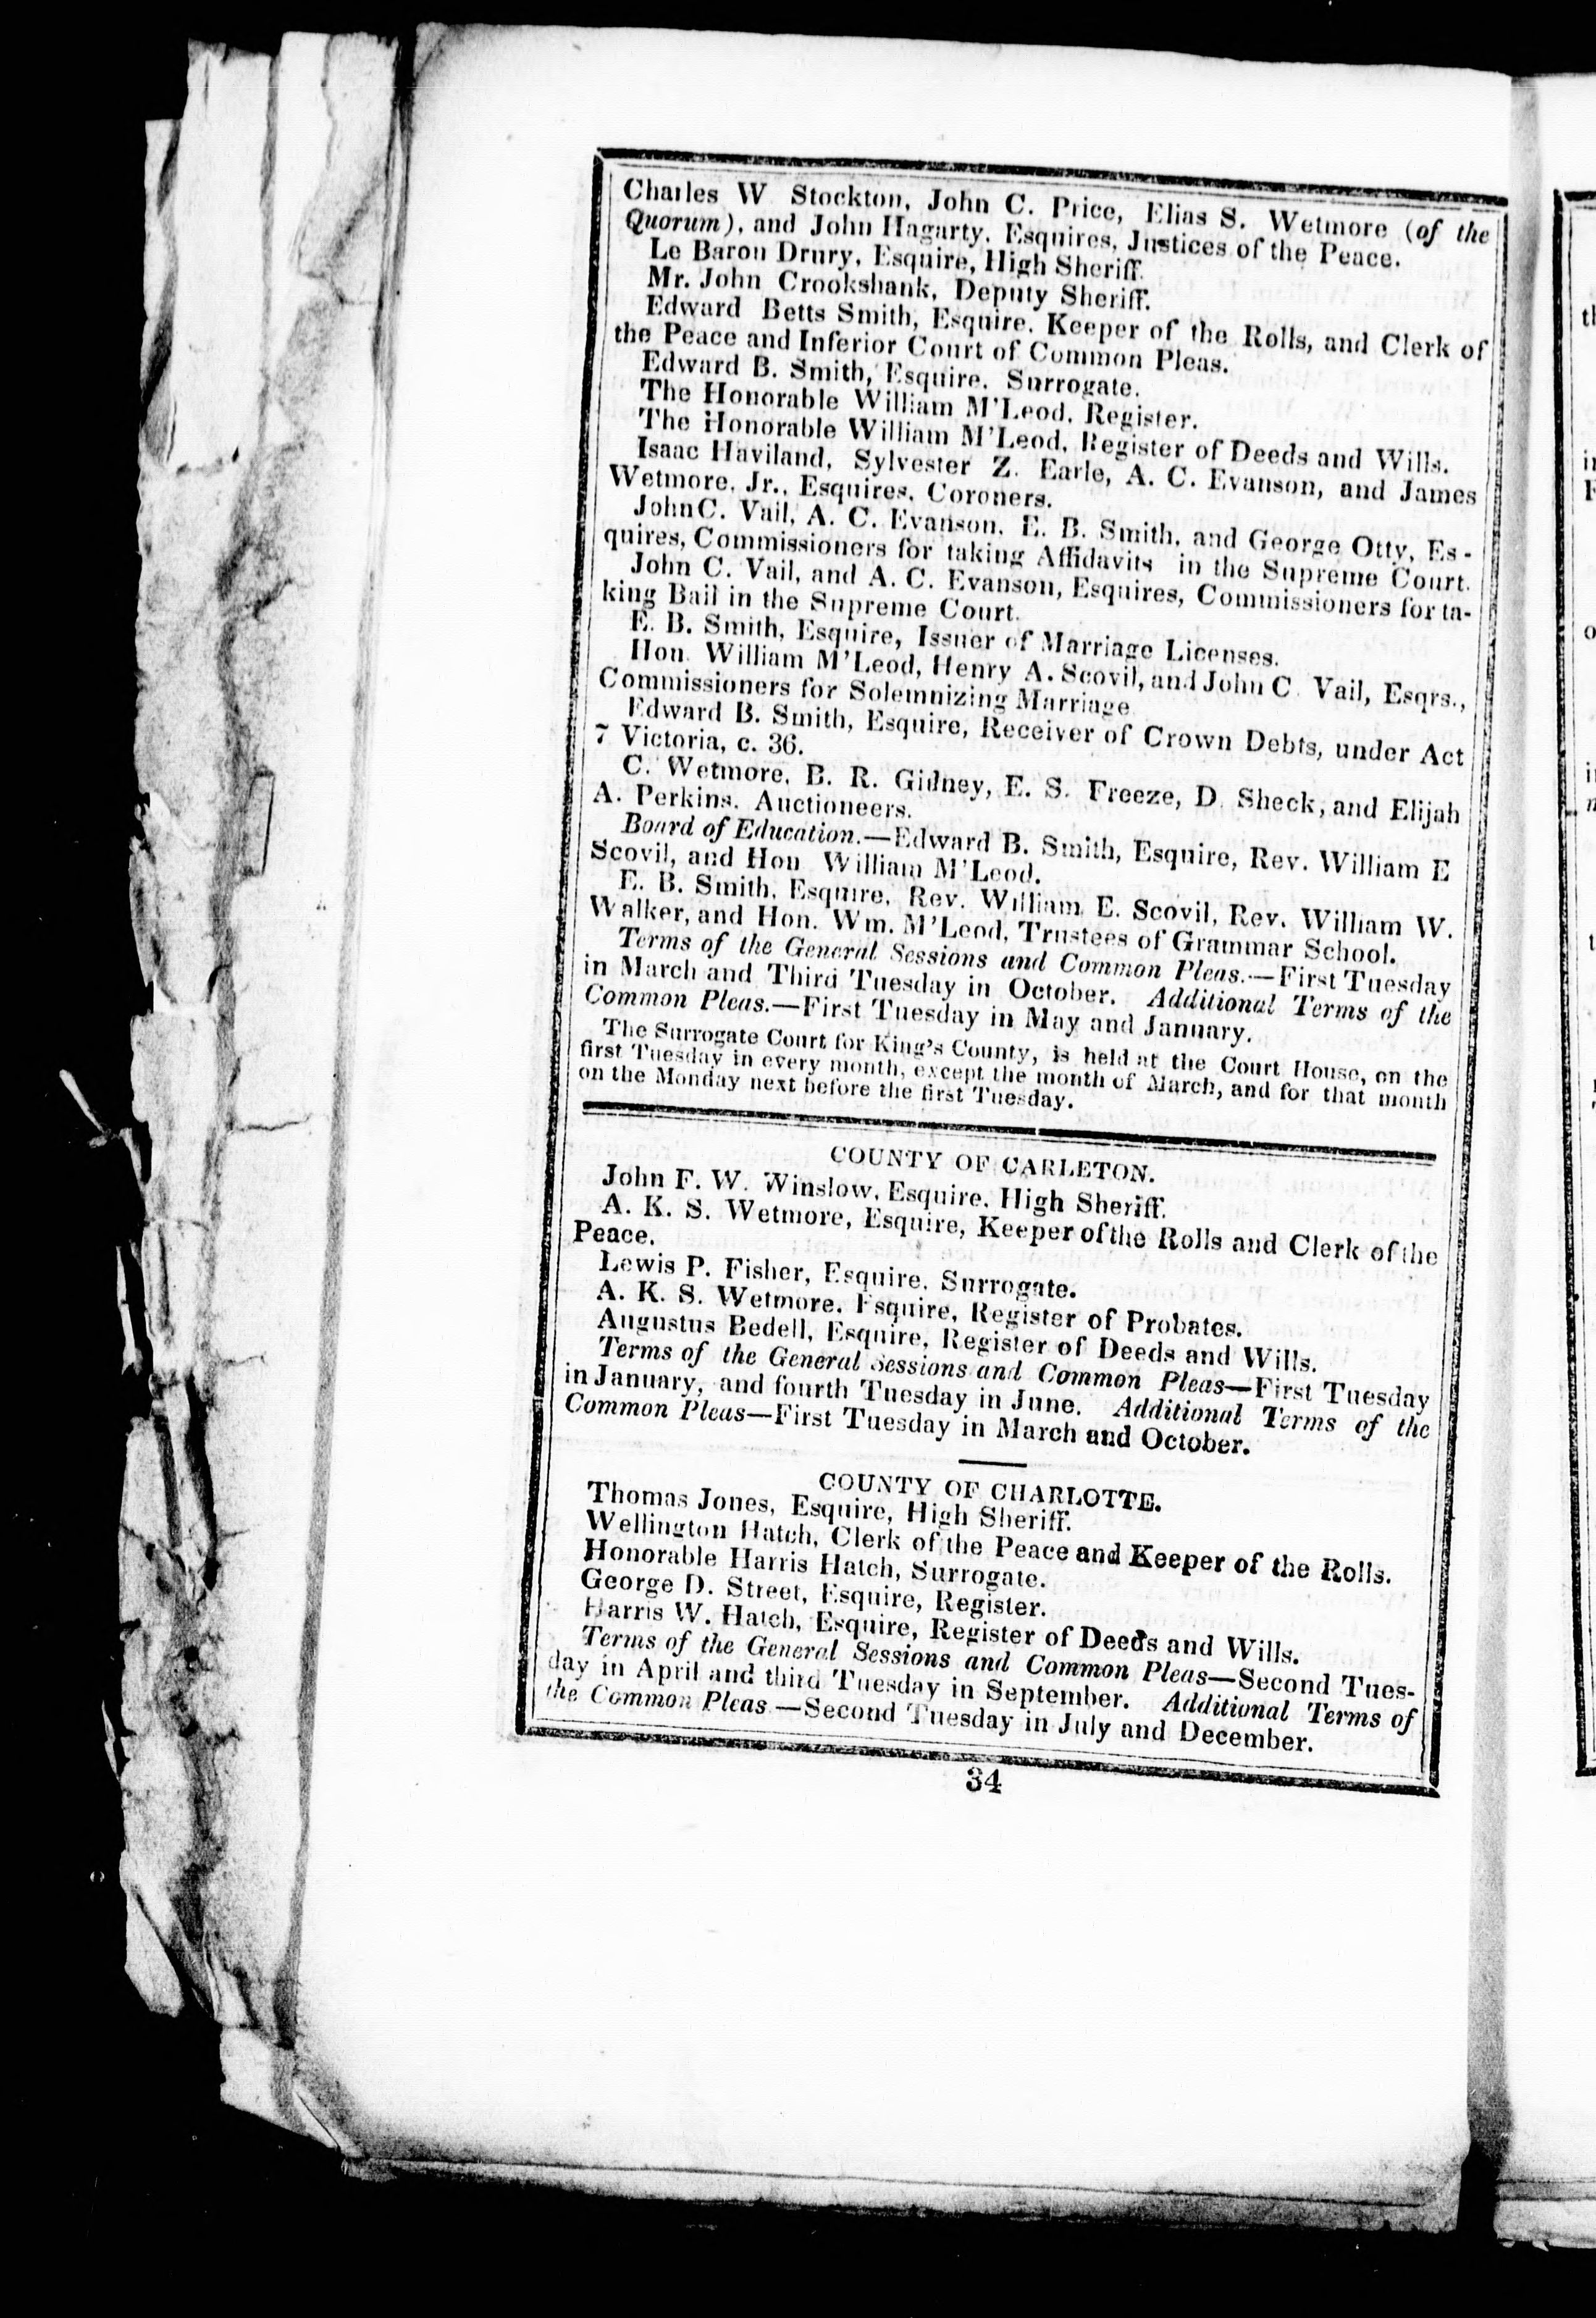 Charles W Stockton, John C. Price, Elias S. Wetmore (of the
Quorum), and John Hagarty, Esquires, Justices of the Peace.
Le Baron Drury, Esquire, High Sheriff.
Mr. John Crookshank, Deputy Sheriff.
Edward Betts Smith, Esquire, Keeper of the Rolls, and Clerk of
the Peace and Inferior Court of Common Pleas.
Edward B. Smith, Esquire, Surrogate.
The Honorable William M'Leod, Register.
The Honorable William M'Leod, Register of Deeds and Wills.
Isaac Haviland, Sylvester Z. Earle, A. C. Evanson, and James
Wetmore, Jr., Esquires, Coroners.
John C. Vail, A. C. Evanson, E. B. Smith, and George Otty, Es-
quires, Commissioners for taking Affidavits in the Supreme Court.
John C. Vail, and A. C. Evanson, Esquires, Commissioners for ta-
king Bail in the Supreme Court.
E. B. Smith, Esquire, Issuer of Marriage Licenses.
Hon. William M'Leod, Henry A. Scovil, and John C. Vail, Esqrs.,
Commissioners for Solemnizing Marriage
Edward B. Smith, Esquire, Receiver of Crown Debts, under Act
7 Victoria, c. 36.
C. Wetmore, B. R. Gidney, E. S. Freeze, D. Sheck, and Elijah
A. Perkins, Auctioneers.
Board of Education.—Edward B. Smith, Esquire, Rev. William E
Scovil, and Hon William M'Leod.
E. B. Smith, Esquire, Rev. William E. Scovil, Rev. William W.
Walker, and Hon. Wm. M'Leod, Trustees of Grammar School.
Terms of the General Sessions and Common Pleas.—First Tuesday
in March and Third Tuesday in October. Additional Terms of the
Common Pleas.—First Tuesday in May and January.
The Surrogate Court for King's County, is held at the Court House, on the
first Tuesday in every month, except the month of March, and for that month
on the Monday next before the first Tuesday.
COUNTY OF CARLETON.
John F. W. Winslow, Esquire, High Sheriff.
A. K. S. Wetmore, Esquire, Keeper of the Rolls and Clerk of the
Peace.
Lewis P. Fisher, Esquire, Surrogate.
A. K. S. Wetmore, Esquire, Register of Probates.
Augustus Bedell, Esquire, Register of Deeds and Wills.
Terms of the General Sessions and Common Pleas—First Tuesday
in January, and fourth Tuesday in June. Additional Terms of the
Common Pleas—First Tuesday in March and October.
COUNTY OF CHARLOTTE.
Thomas Jones, Esquire, High Sheriff.
Wellington Hatch, Clerk of the Peace and Keeper of the Rolls.
Honorable Harris Hatch, Surrogate.
George D. Street, Esquire, Register.
Harris W. Hatch, Esquire, Register of Deeds and Wills.
Terms of the General Sessions and Common Pleas—Second Tues-
day in April and third Tuesday in September. Additional Terms of
the Common Pleas.—Second Tuesday in July and December.
34